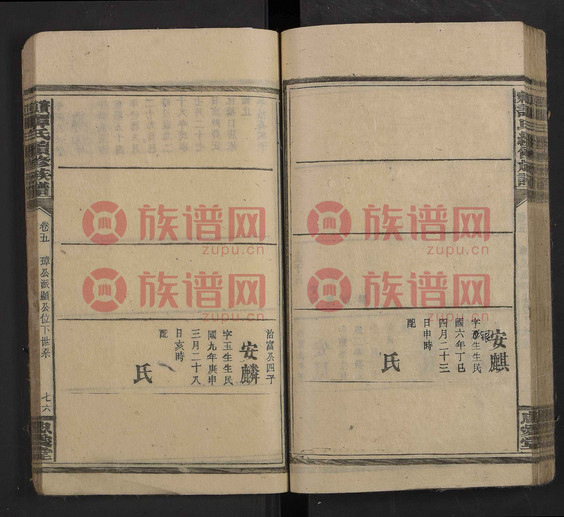 族谱网
zupu.cn
族谱网
zupu.cn
安麒
字
生生民
國六年丁巳
四月二十三
日申時
配
氏
治富公四子
安麟
字玉生生民
國九年庚申
三月二十八
日亥時
配
氏
卷五
璋公派顯公位下世系
七六
族谱网
zupu.cn
族谱网
zupu.cn